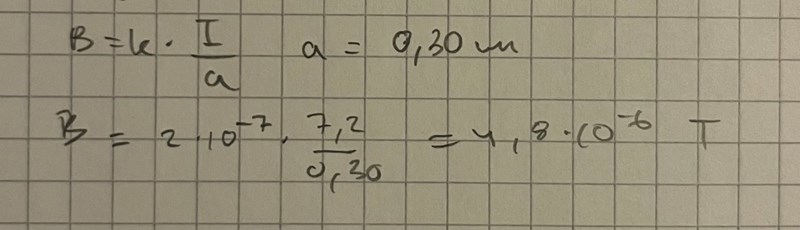 B = k · I/a   a = 0,30 m
B = 2 · 10⁻⁷ · 7,2/0,30 = 4,8 · 10⁻⁶ T